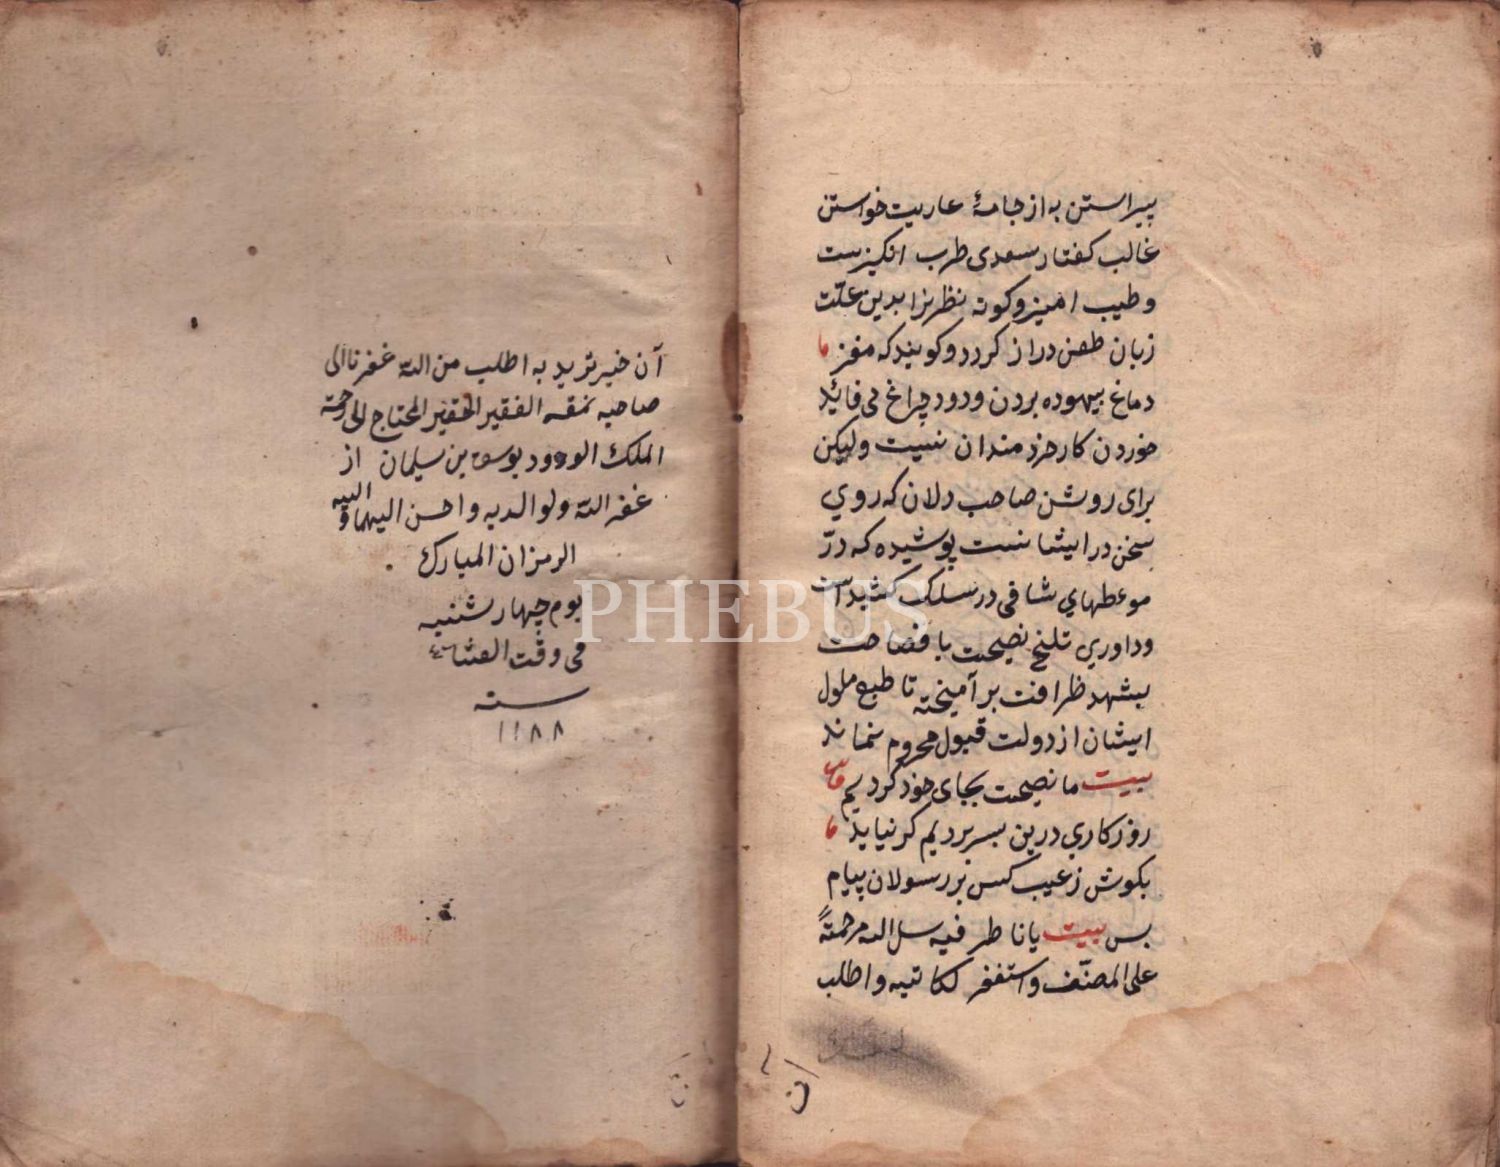 پیراستن به از جامهٔ عاریت خواستن
غالب کفتار سعدی طرب انکیزست
و طیب امیز و کوته نظرنرا بدین علّت
زبان طعن دراز کردد و کویند که مغز
دماغ بیهوده بردن و دود چراغ می فائده
خوردن کار خردمندان نیست ولیکن
برای روشن صاحب دلان که روی
سخن در ایشانست پوشیده که درّ
موعظهای شافی در سلک کشیدست
و داوری تلخ نصیحت با فصاحت
بشهد ظرافت بر آمیخته تا طبع ملول
ایشان از دولت قبول محروم نماند
بیت ما نصیحت بجای خود کردیم
روزکاری درین بسر بردیم کر نیاید
بکوش زعیب کس بر رسولان پیام
بس بیت یا ناطر فیه سل الله مرحمةً
علی المصنّف و استغفر لکاتبه و اطلب
ان
آن خیر ترید به اطلب من الله غفرنا الی
صاحبه نمقه الفقیر الحقیر المحتاج الی رحمة
الملک الودود یوسف بن سلیمان از
غفر الله ولوالدیه و احسن الیهما و الیه
الرمزان المبارک
یوم چهار شنبه
فی وقت العشا
سنه
١١٨٨
PHEBUS